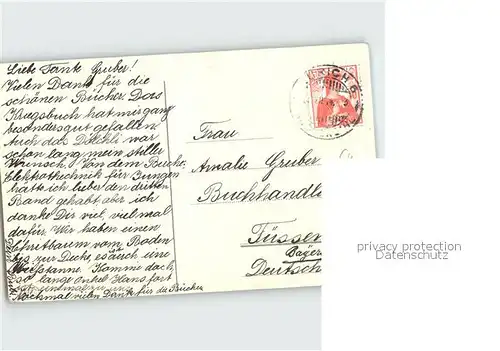 Liebe Tante Gruber!
Vielen Dank für die
schönen Bücher. Das
Kriegsbuch hat mir ganz
besonders gut gefallen.
Auch das war
schon lang mein stiller
Wunsch. Von dem Buche:
Elektrotechnik für Jungen
hätte ich lieber den dritten
Band gehabt aber ich
danke Dir viel, viel mal
dafür. Wir haben einen
Christbaum vom Boden
bis zur Decke, es ist eine
Weisstanne. Komme doch
so lange Onkel Hans fort
ist einmal zu uns.
Nochmal vielen Dank für die Bücher
Frau
Amalie Gruber
Buchhandl
Füssen
Bayer
Deutsch
ZÜRICH 6
privacy protection
Datenschutz